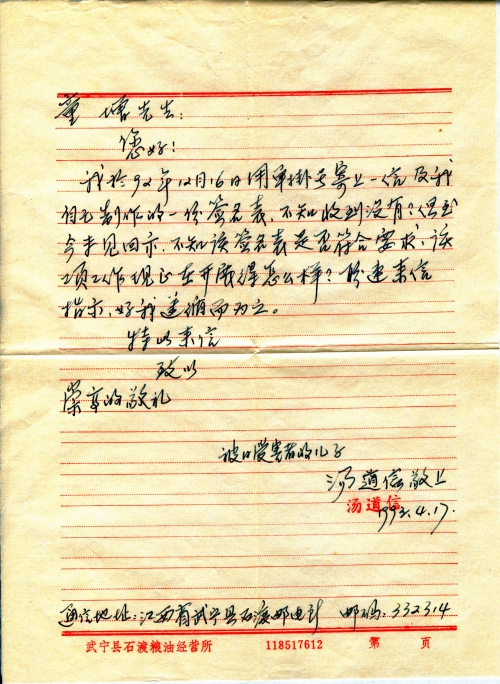 童增先生:
您好!
我於92年12月16日用单掛号寄上一信及我
自己制作的一份签名表,不知收到没有?但至
今未见回示,不知该签名表是否符合要求,该
项工作现正在开展得怎么样?盼速来信
指示,好我遵循而为之。
特以来信
致以
崇高的敬礼
被日受害者的儿子
汤道信敬上
汤道信
1993.4.17.
通信地址:江西省武宁县石渡邮电所 邮码:332314
武宁县石渡粮油经营所 118517612 第 页